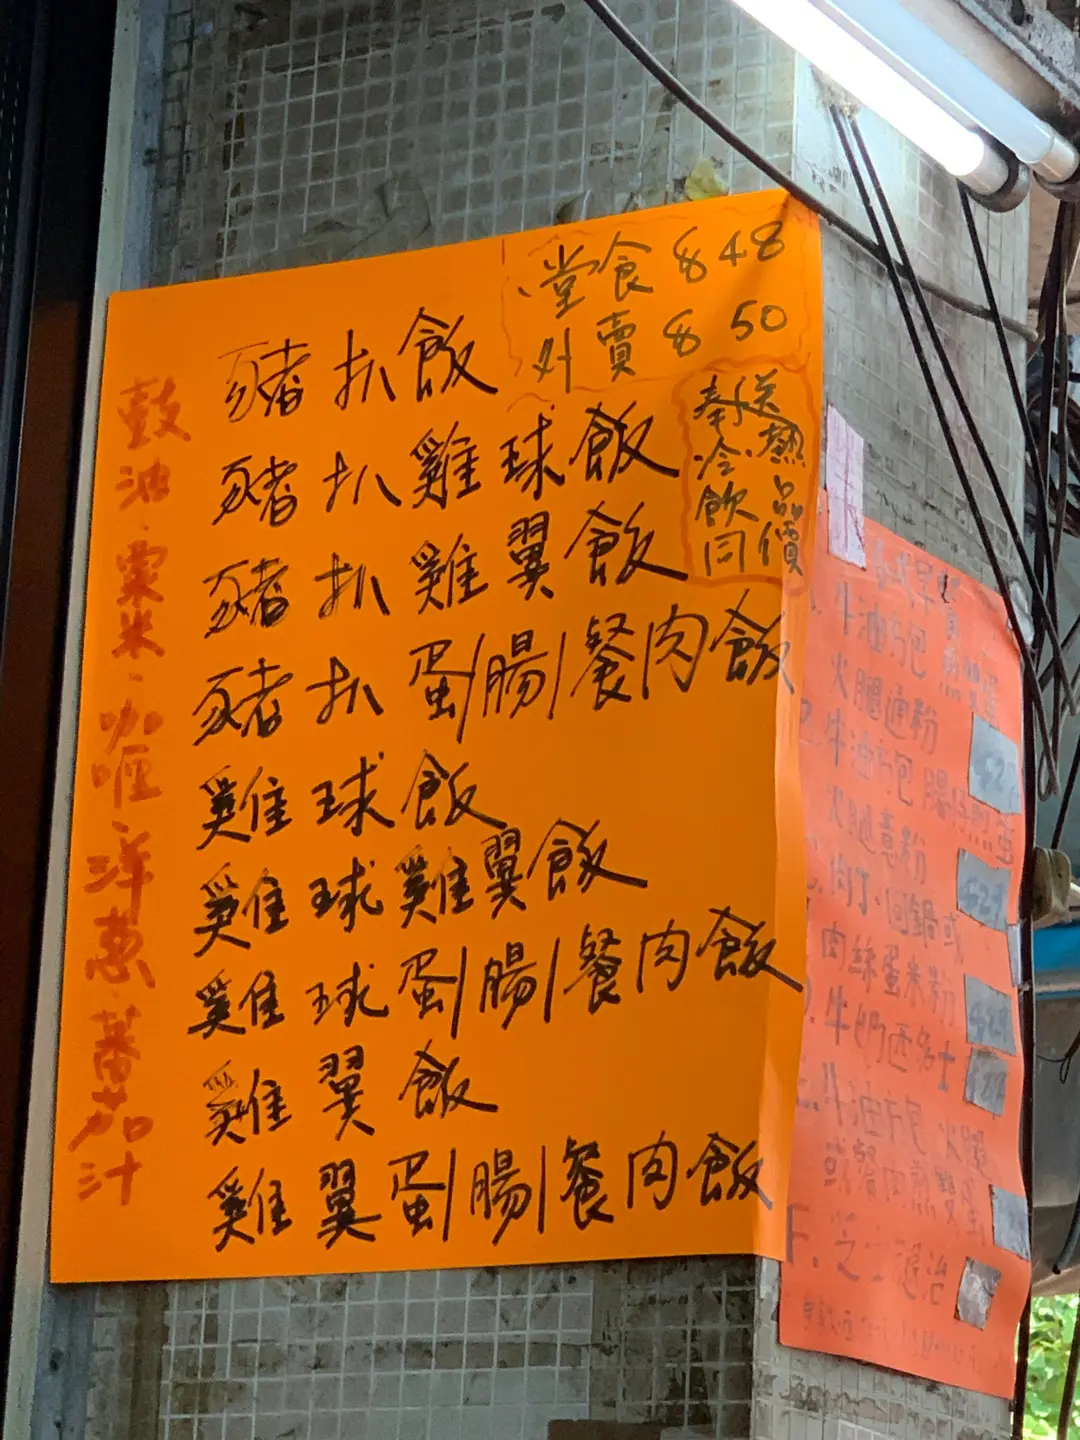 堂食 $ 48
外賣 $ 50
奉送熱
冷飲品
同價
豬扒飯
豬扒雞球飯
豬扒雞翼飯
豬扒蛋/腸/餐肉飯
雞球飯
雞球雞翼飯
雞球蛋/腸/餐肉飯
雞翼飯
雞翼蛋/腸/餐肉飯
豉油·粟米·咖喱·洋蔥·蕃茄汁
牛油方包
火腿通粉
牛油方包腸仔煎蛋
火腿意粉
肉丁·回鍋或
肉絲蛋米粉
牛奶西多士
牛油方包 火腿
或餐肉煎雙蛋
F.